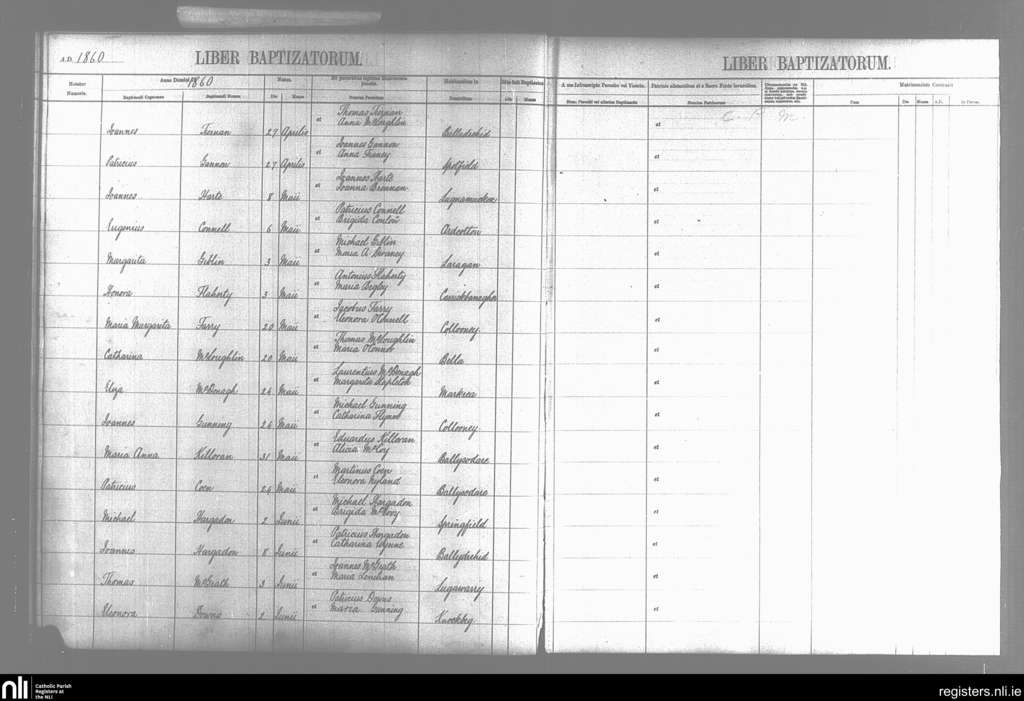 A.D. 1860
LIBER BAPTIZATORUM
LIBER BAPTIZATORUM.
Anno Domini 1860
Natus.
Numerus
Baptizandi Cognomen
Baptizandi Nomen
Die
Mense
Nomina Parentum
Die
Mense
Matrimonium Contraxit
Cum
Die
Mense
A.D.
Joannes Tiernan 27 Aprilis Thomas Tiernan
et Anna McLoughlin Ballydrehid et
Patricius Gannon 27 Aprilis Joannes Gannon
et Anna Feeney et
Joannes Harte 8 Maii Joannes Harte
et Joanna Brennan Lugnamackan et
Eugenius Connell 6 Maii Patricius Connell
et Brigida Conlon Ardcotton et
Margarita Giblin 3 Maii Michael Giblin
et Maria A. Sweeney Laragan et
Honora Flaherty 3 Maii Antonius Flaherty
et Maria Begley Carrickbanagher et
Maria Margarita Farry 20 Maii Jacobus Farry
et Eleonora OConnell Collooney et
Catharina McLoughlin 20 Maii Thomas McLoughlin
et Maria OConnor Bella et
Eliza McDonagh 24 Maii Laurentius McDonagh
et Margarita Stapleton Markrea et
Joannes Gunning 26 Maii Michael Gunning
et Catharina Flynn Collooney et
Maria Anna Killoran 31 Maii Eduardus Killoran
et Alicia McCoy Ballysodare et
Patricius Coen 24 Maii Martinus Coen
et Eleonora Hyland Ballysodare et
Michael Hargadon 2 Junii Michael Hargadon
et Brigida Springfield et
Joannes Hargadon 8 Junii Patricius Hargadon
et Catharina Wynne Ballydrehid et
Thomas McGrath 3 Junii Joannes McGrath
et Maria Lenehan Lugawarry et
Eleonora Downs 2 Junii Patricius Downs
et Maria Gunning Knockbeg et
nli
Catholic Parish
Registers at
the NLI
registers.nli.ie